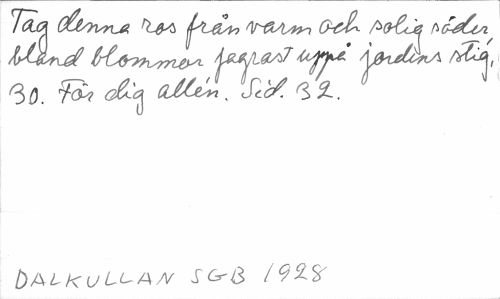 Tag denna ros från varm och solig söder,
bland blommor fagrast uppå jordens stig.
30. För dig allén. Sid. 32.
DALKULLAN SGB 1928